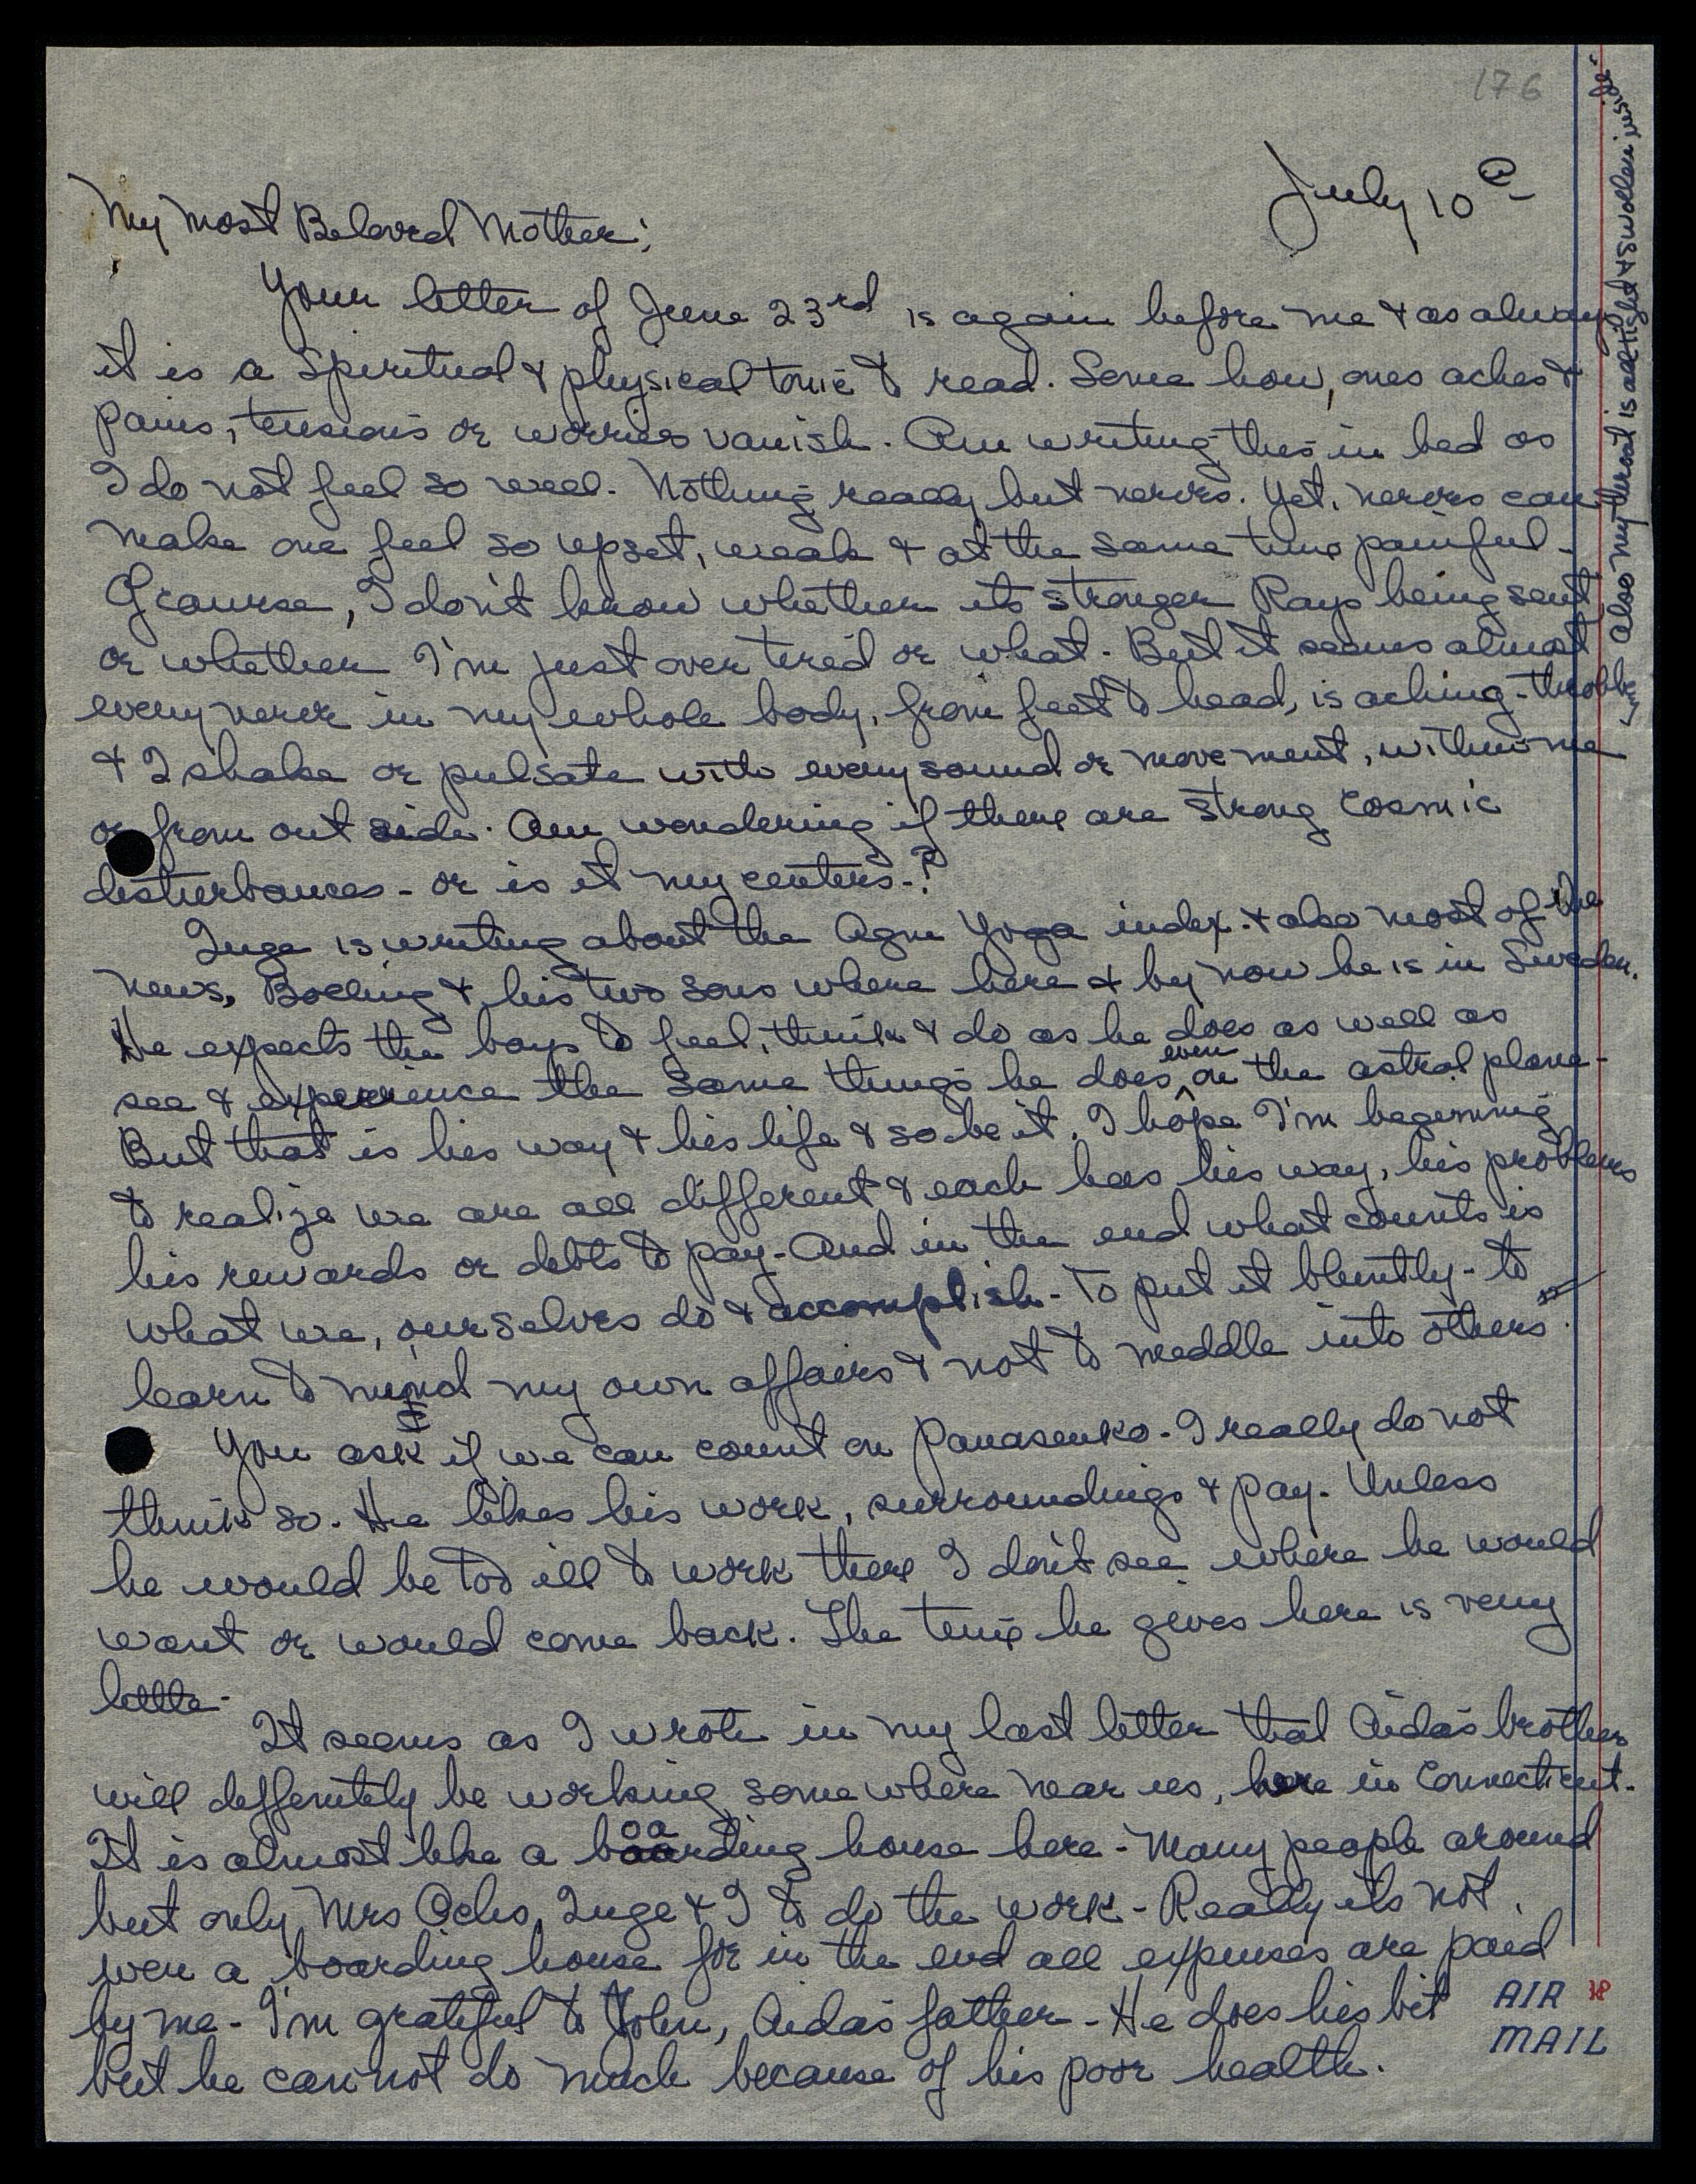 176
July 10th
My most Beloved Mother:
Your letter of June 23rd is again before me & as always
it is a Spiritual & physical tonic to read. Some how, ones aches &
pains, tensions or worries vanish. Am writing this in bed as
I do not feel so well. Nothing really but nerves. Yet, nerves can
make one feel so upset, weak & at the same time painful-
Of course, I don't know whether its stronger Rays being sent
or whether I'm just over tired or what. But it seems almost
every nerve in my whole body, from feet to head, is aching-throbbing
& I shake or pulsate with every sound or movement, within me
or from out side. Am wondering if there are strong Cosmic
disturbances - or is it my centers-?
also my throat is all tight & swollen inside-
Inge is writing about the Agni Yoga index. & also most of the
news, Boeling & his two sons where here & by now he is in Sweden.
He expects the boys to feel, think & do as he does as well as
see & experience the same things he does, even on the astral plane-
But that is his way & his life & so be it. I hope I'm beginning
to realize we are all different & each has his way, his problems
his rewards or debts to pay - And in the end what counts is
what we, ourselves do & accomplish - To put it bluntly - to
learn to mind my own affairs & not to meddle into others'.
You ask if we can count on Panasenko - I really do not
think so. He likes his work, surroundings & pay. Unless
he would be too ill to work there I don't see where he would
want or would come back. The time he gives here is very
little-
It seems as I wrote in my last letter that Aida's brother
will deffenitely be working some where near us, here in Connecticut.
It is almost like a boarding house here - Many people around
but only Mrs Ochs, Inge & I to do the work - Really its not
even a boarding house for in the end all expenses are paid
by me - I'm grateful to John, Aida's father - He does his bit
but he can not do much because of his poor health.
AIR
MAIL